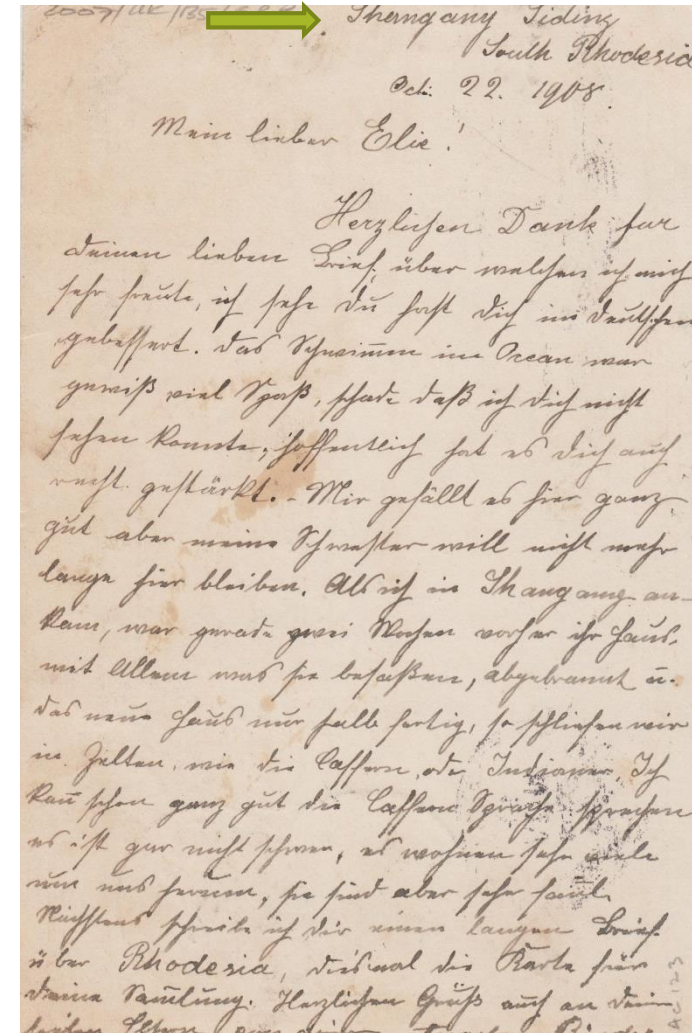 2007/UK/135/
Shangany Siding
South Rhodesia
Oct: 22. 1908.
Mein lieber Elie!
Herzlichen Dank fur
deinen lieben Brief, über welchen ich mich
sehr freute, ich sehe Du hast Dich im Deutschen
gebessert. Das Schwimmen im Ocean war
gewiß viel Spaß, schade daß ich Dich nicht
sehen konnte, hoffentlich hat es Dich auch
recht gestärkt. - Mir gefällt es hier ganz
gut aber meine Schwester will nicht mehr
lange hier bleiben. Als ich in Shangany an-
kam, war gerade zwei Wochen vorher ihr Haus,
mit Allem was sie besaßen, abgebrannt u.
das neue Haus nur halb fertig, so schliefen wir
in Zelten, wie die Caffern, oder Indianer, Ich
kan̄ schon ganz gut die Caffern Sprache sprechen
es ist gar nicht schwer, es wohnen sehr viele
um uns herum, sie sind aber sehr faul.
Nächstens schreibe ich dir einen langen Brief
über Rhodesia, diesmal die Karte für
deine Samlung. Herzlichen Gruß auch an deine
lieben Eltern von
AC 123